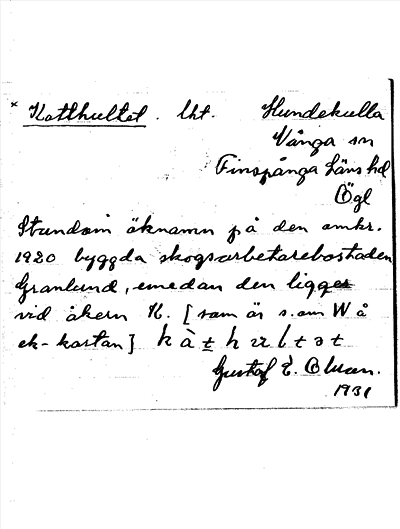 × Katthultet. lht. Hundekulla
Vånga sn
Finspånga läns hd
Ögl
Stundom öknamn på den omkr.
1920 byggda skogsarbetarebostaden
Granlund, emedan den ligger
vid åkern K. [som är s. om W å
ek-kartan] k à t h u l t ə t
Gustaf E.
1931